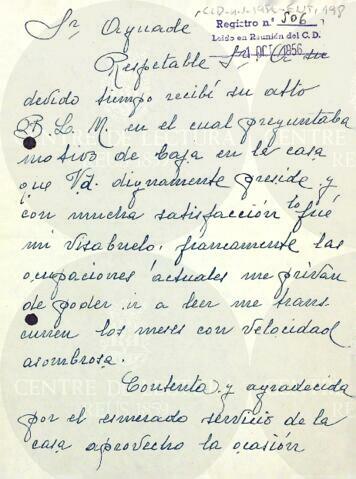 CLD-1.1-1956-ENT,198
Sr Aguadé
Registro n.º 506
Leído en Reunión del C.D.
1 OCT 1956
Respetable Sr. A su
debido tiempo recibí su atto
B. L. M. en el cual preguntaba
motivo de baja en la casa
que Vd. dignamente preside y
con mucha satisfacción lo fué
mi visabuelo, francamente las
ocupaciones actuales me privan
de poder ir a leer me trans
curren los meses con velocidad
asombrosa.
Contenta y agradecida
por el esmerado servicio de la
casa aprovecho la ocasión
CENTRE DE LECTURA
REUS 1859